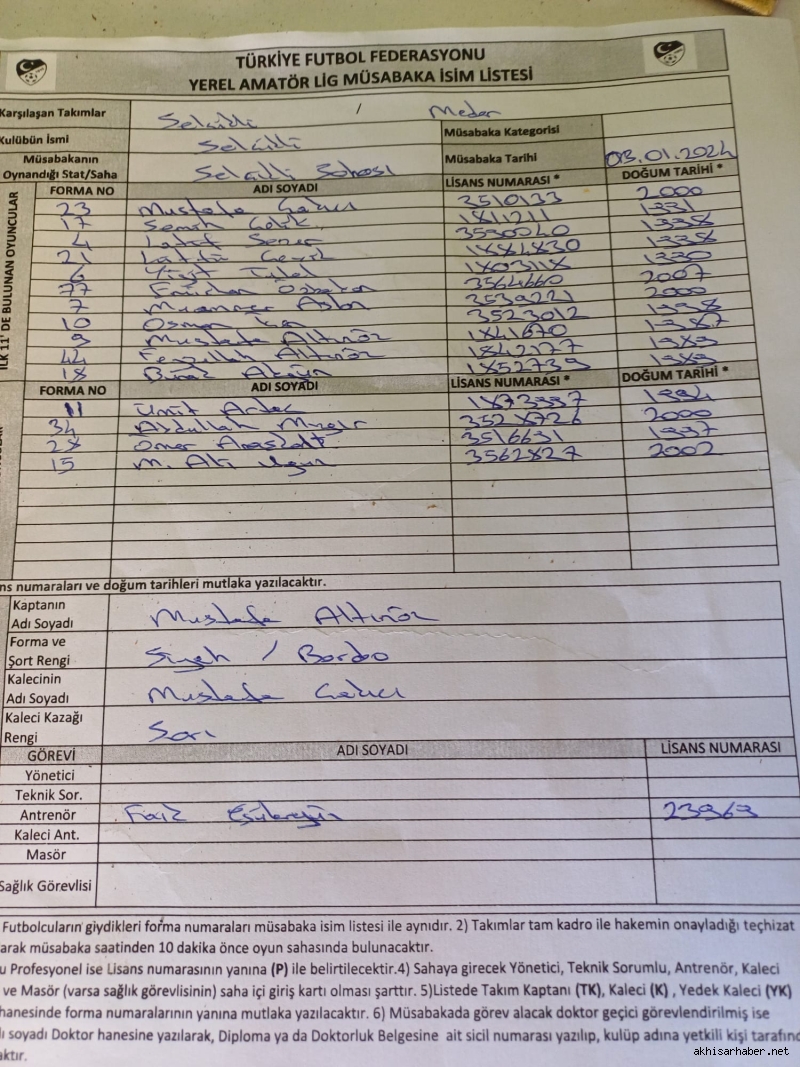 TÜRKİYE FUTBOL FEDERASYONU
YEREL AMATÖR LİG MÜSABAKA İSİM LİSTESİ
Karşılaşan Takımlar Selçikli / Medar
Kulübün İsmi Selçikli Müsabaka Kategorisi
Müsabakanın Oynandığı Stat/Saha Selçikli Sahası Müsabaka Tarihi 03.01.2024
İLK 11' DE BULUNAN OYUNCULAR
FORMA NO ADI SOYADI LİSANS NUMARASI * DOĞUM TARİHİ *
23 Mustafa 3510133 2000
17 Semih Çelik 1811211 1991
4 Latif Şener 3530040 1998
21 1884830 1998
6 Yiğit 1803118 1990
77 3564660 2007
7 Muammer Aslan 3539221 2000
10 Osman 3523012 1998
9 Mustafa Altınöz 1841670 1987
44 Feyzullah Altınöz 1842177 1989
18 1852739 1989
FORMA NO ADI SOYADI LİSANS NUMARASI * DOĞUM TARİHİ *
11 Ümit 1873997 1994
34 Abdullah 3528726 2000
28 Ömer 3516631 1997
15 M. Ali 3562827 2002
ns numaraları ve doğum tarihleri mutlaka yazılacaktır.
Kaptanın Adı Soyadı Mustafa Altınöz
Forma ve Şort Rengi Siyah / Bordo
Kalecinin Adı Soyadı Mustafa
Kaleci Kazağı Rengi Sarı
GÖREVİ ADI SOYADI LİSANS NUMARASI
Yönetici
Teknik Sor.
Antrenör Faiz 23963
Kaleci Ant.
Masör
Sağlık Görevlisi
Futbolcuların giydikleri forma numaraları müsabaka isim listesi ile aynıdır. 2) Takımlar tam kadro ile hakemin onayladığı teçhizat
arak müsabaka saatinden 10 dakika önce oyun sahasında bulunacaktır.
u Profesyonel ise Lisans numarasının yanına (P) ile belirtilecektir.4) Sahaya girecek Yönetici, Teknik Sorumlu, Antrenör, Kaleci
ve Masör (varsa sağlık görevlisinin) saha içi giriş kartı olması şarttır. 5)Listede Takım Kaptanı (TK), Kaleci (K) , Yedek Kaleci (YK)
hanesinde forma numaralarının yanına mutlaka yazılacaktır. 6) Müsabakada görev alacak doktor geçici görevlendirilmiş ise
lı soyadı Doktor hanesine yazılarak, Diploma ya da Doktorluk Belgesine ait sicil numarası yazılıp, kulüp adına yetkili kişi tarafınd
aktır.
akhisarhaber.net